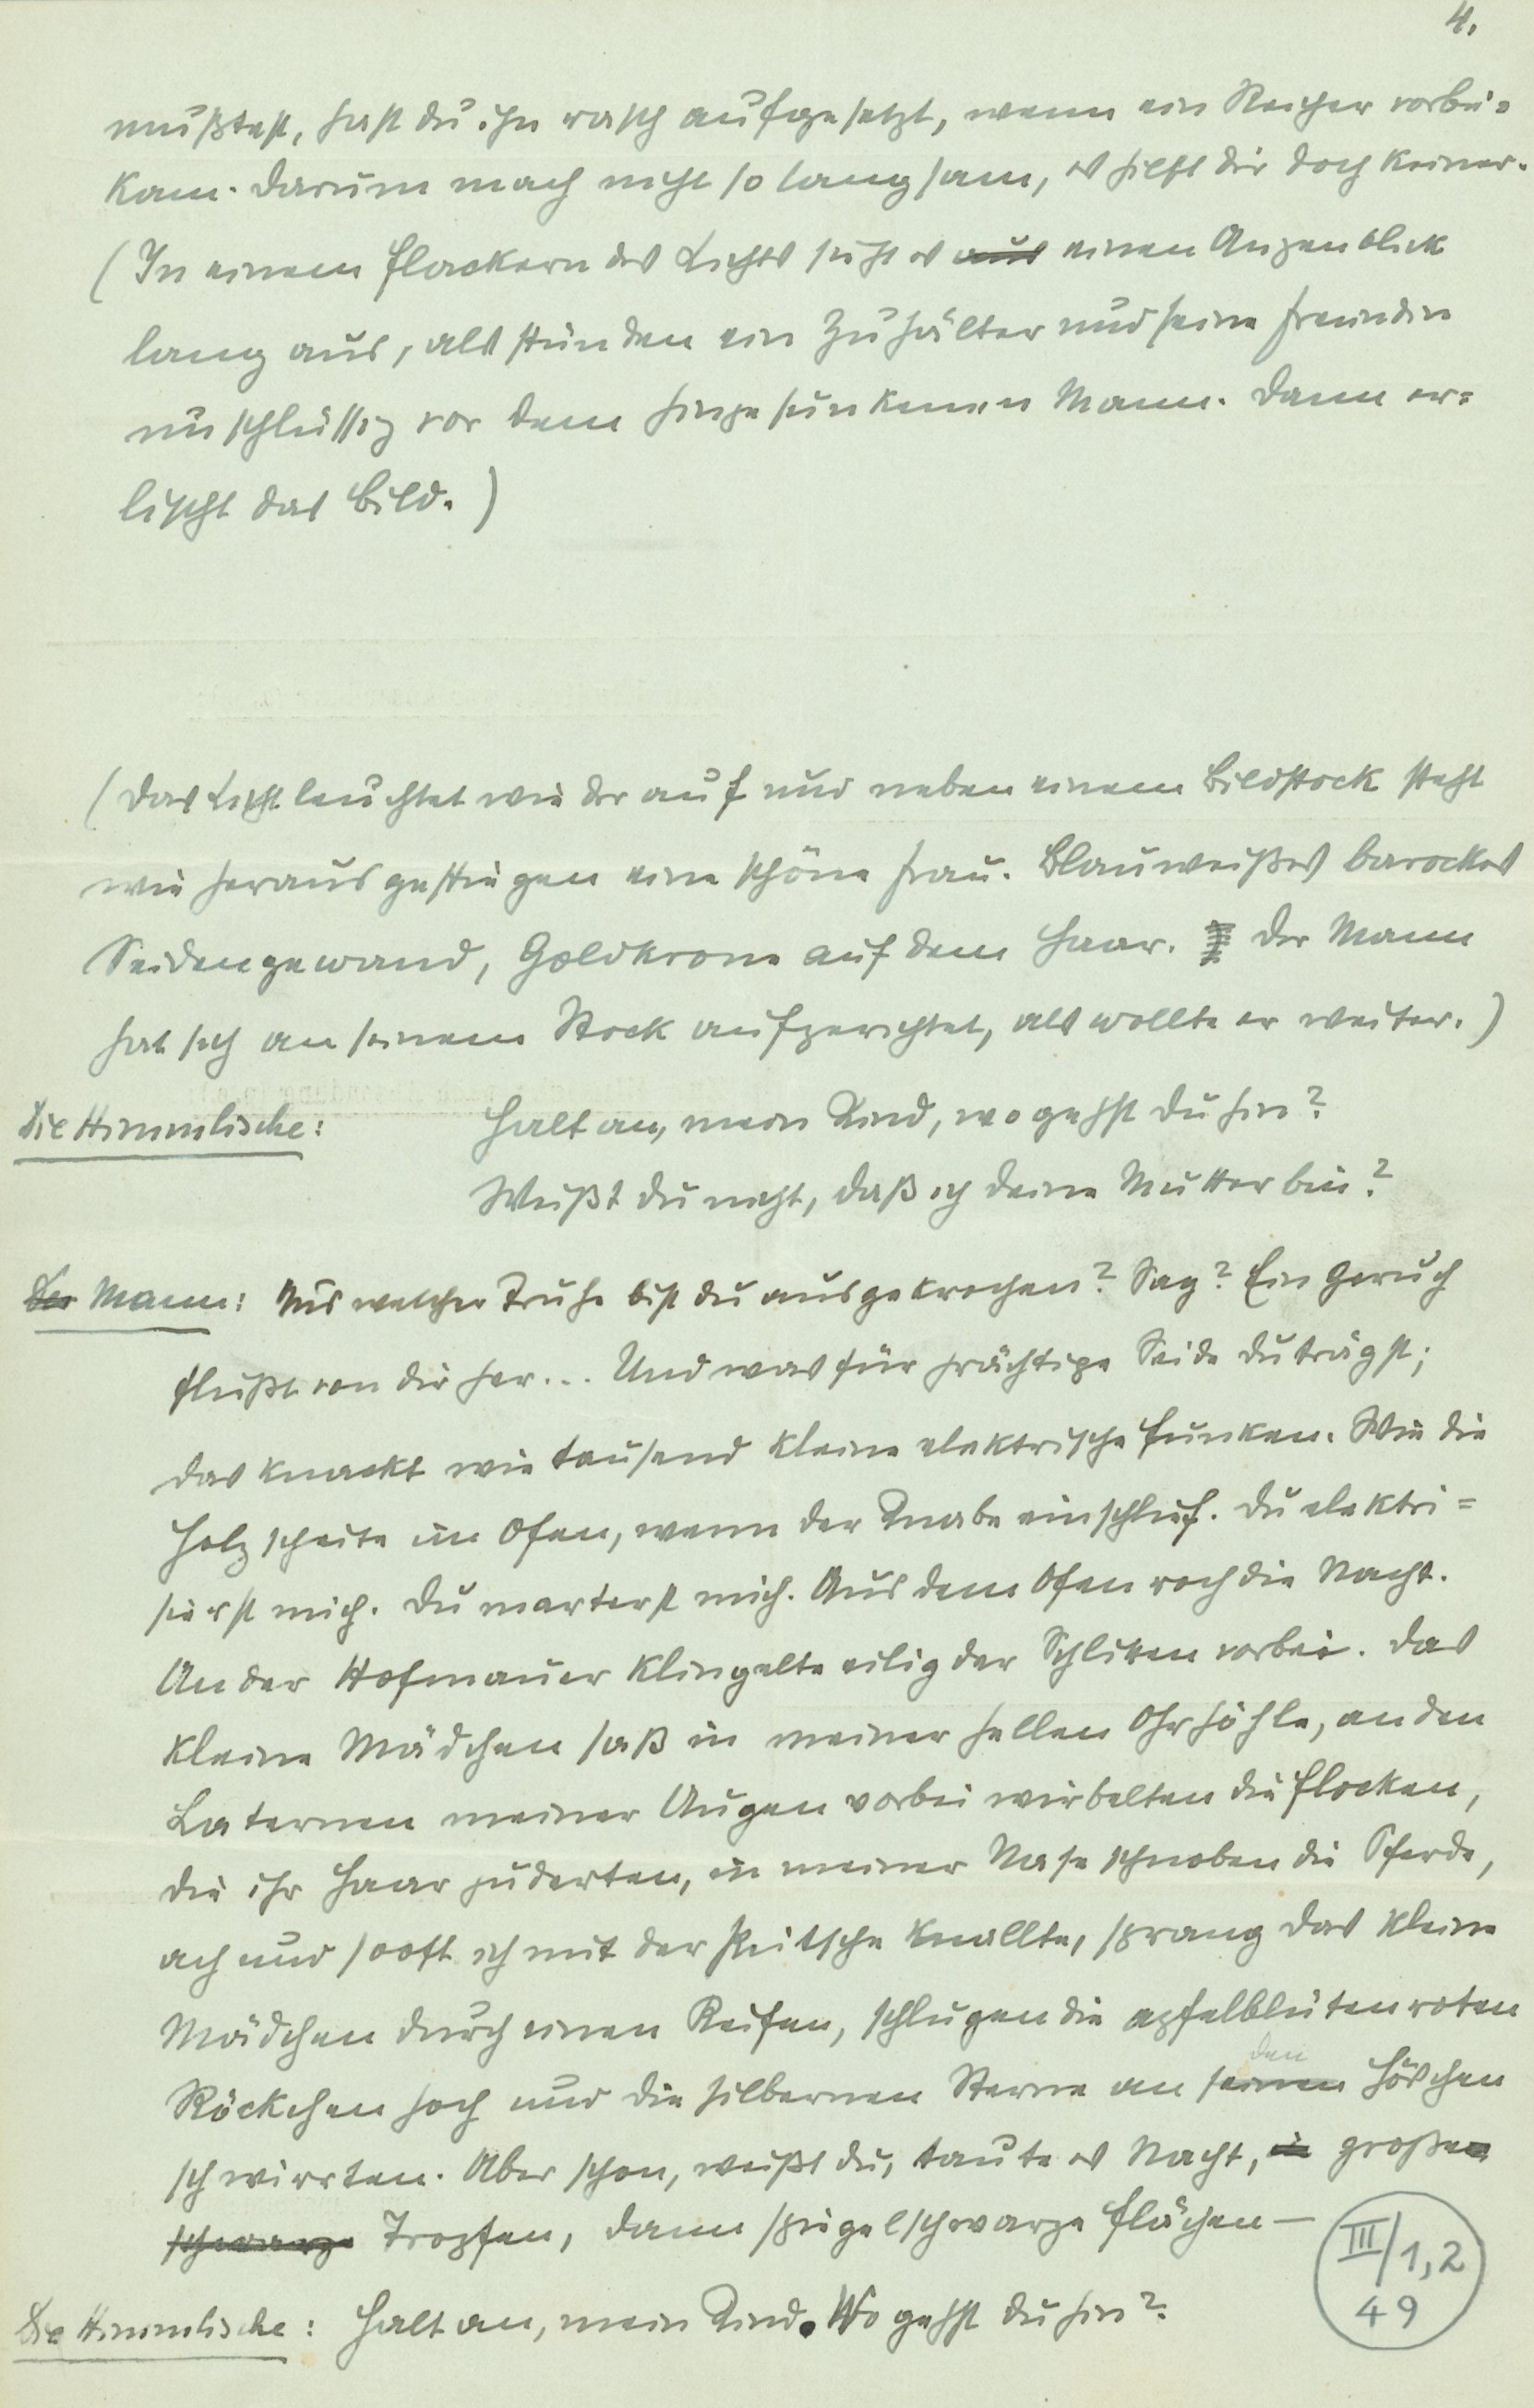 4.
mußtest, hast du ihn rasch aufgesetzt, wenn ein Reicher vorbei-
kam. Darum mach nicht so langsam, es hilft dir doch keiner.
(In einem Flackern des Lichts sieht es aus einen Augenblick
lang aus, als stünden ein Zuhälter und seine Freundin
unschlüssig vor dem hingesunkenen Mann. Dann er-
lischt das Bild.)
(Das Licht leuchtet wieder auf und neben einem Bildstock steht
wie herausgestiegen eine schöne Frau. Blauweißes barockes
Seidengewand, Goldkrone auf dem Haar. Der Mann
hat sich an seinem Stock aufgerichtet, als wollte er weiter.)
Die Himmlische: Halt an, mein Kind, wo gehst du hin?
Weißt du nicht, daß ich deine Mutter bin?
Der Mann: Aus welcher Truhe bist du ausgekrochen? Sag? Ein Geruch
fließt von dir her... Und was für prächtige Seide du trägst;
das knackt wie tausend kleine elektrische Funken. Wie die
Holzscheite im Ofen, wenn der Knabe einschlief. Du elektri=
sierst mich. Du marterst mich. Aus dem Ofen roch die Nacht.
An der Hofmauer klingelte eilig der Schlitten vorbei. Das
kleine Mädchen saß in meiner hellen Ohrhöhle, an den
Laternen meiner Augen vorbei wirbelten die Flocken,
die ihr Haar puderten, in meiner Nase schnoben die Pferde,
ach und sooft ich mit der Peitsche knallte, sprang das kleine
Mädchen durch einen Reifen, schlugen die apfelblütenroten
Röckchen hoch und die silbernen Sterne an seinen den Höschen
schwirrten. Aber schon, weißt du, taute es Nacht, in große
schwarze Tropfen, dann spiegelschwarze Flächen —
Die Himmlische: Halt an, mein Kind. Wo gehst du hin?
III/1,2
49